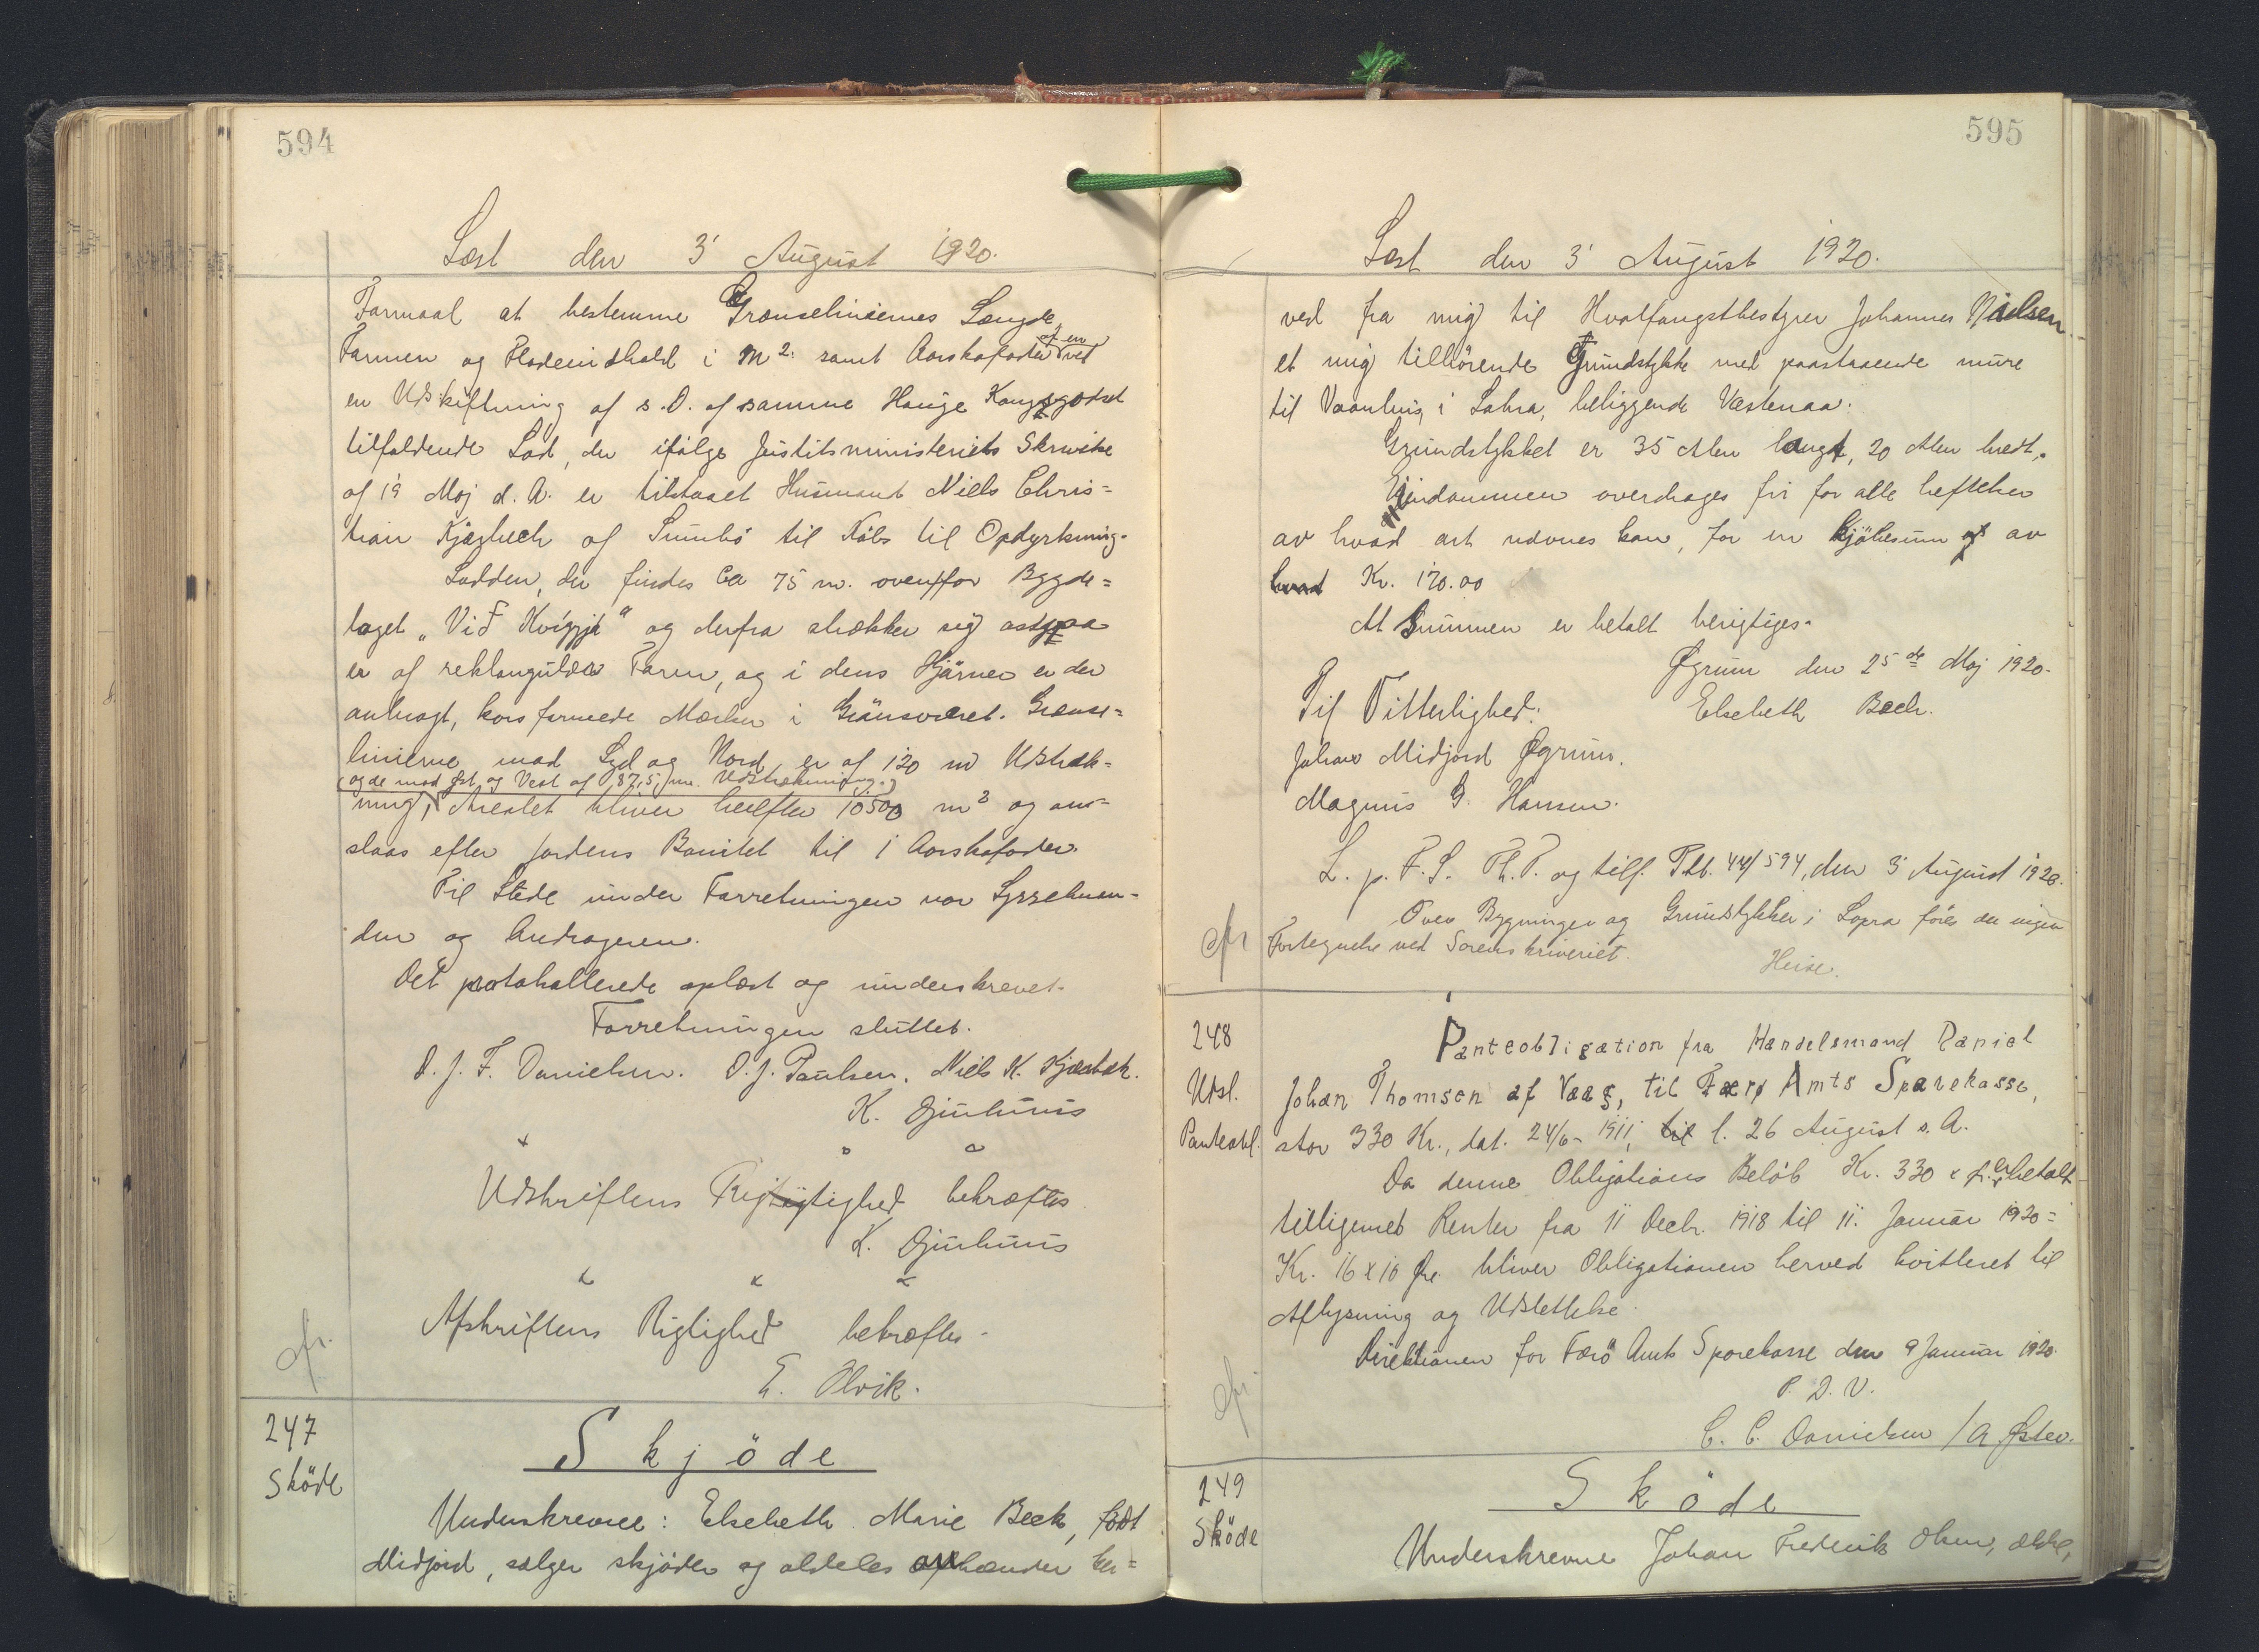 594
Læst den 3' August 1920.
Formaal at bestemme Grænseliniernes Længde,
Formen og Fladeindhold i m². samt Aarskofoder af en ved
en Udskiftning af s. D. af samme Hauge Kongsgodset
tilfaldende Lod, der ifølge Justitsministeriets Skrivelse
af 19 Maj d. A. er tilstaaet Husmand Niels Chris=
tian Kjærbech af Sumbö til Købs til Opdyrkning.
Lodden, der findes Ca 75 m. ovenfor Bygde=
laget „Við Kvíggjá" og derfra strækker sig ostpaa
er af rektangulær Form, og i dens Hjörner er der
anbragt, korsformede Mærker i Grönsværet. Grænse=
linierne mod Syd og Nord er af 120 m Udstræk=
(og de mod Øst og Vest af 87,5 m. Udstrækning.)
ning, Arealet bliver herefter 10500 m² og an=
slaas efter Jordens Bonitet til 1 Aarskofoder.
Til Stede under Forretningen var Sysselman=
den og Andrageren.
Det protokollerede oplæst og underskrevet.
Forretningen sluttet.
D. J. F. Danielsen. O. J. Paulsen. Niels K. Kjærbæk.
K. Djurhuus
Udskriftens Rigtigtighed bekræftes
K. Djurhuus
Afskriftens Rigtighed bekræftes.
E. Olvik.
cfr.
247
Sköde
Skjöde
Underskrevne: Elsebeth Marie Beck, født
Midjord, sælger skjöder og aldeles afhænder her=
595
Læst den 3' August 1920.
ved fra mig til Hvalfangstbestyrer Johannes Nielsen
et mig tilhörende Grundstykke med paastaaende mure
til Vaanhus i Lobra, beliggende Vestenaa.
Grundstykket er 35 Alen langt, 20 Alen bredt.
Eiendommen overdrages fri for alle heftelser
av hvad art nævnes kan, for en kjöbesum af av
Kr. 170.00
At Summen er betalt berigtiges.
Øgrum den 25de Maj 1920.
Til Vitterlighed: Elsebeth Bech.
Johan Midjord Øgrum.
Magnus G. Hansen.
L. p. F. S. Th. T. og tilf. Ptb. 44/594, den 3' August 1920.
Over Bygninger og Grundstykker i Lopra føres der ingen
Fortegnelse ved Sorenskriveriet.
Heise.
cfr
248
Udsl.
Panteobl.
Panteobligation fra Handelsmand Daniel
Johan Thomsen af Vaag, til Færø Amts Sparekasse,
stor 330 Kr., dat. 24/6- 1911, til l. 26 August s. A.
Da denne Obligations Beløb Kr. 330 er betalt
tilligemed Renter fra 11 Decbr. 1918 til 11. Januar 1920=
Kr. 16 x 10 Øre bliver Obligationen herved kvitteret til
Aflysning og Udslettelse.
Direktionen for Færö Amts Sparekasse den 9 Januar 1920.
P. D. V.
C. C. Danielsen / A Østerø.
cfr.
249
Sköde
Sköde
Underskrevne Johan Frederik Olsen, ældre,